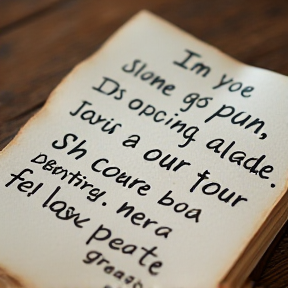 Im yoe
Slone gos pun,
Ds opcing alade.
Javis a our four
Sh coure boa
Dbontirg. nera
fel losw peate